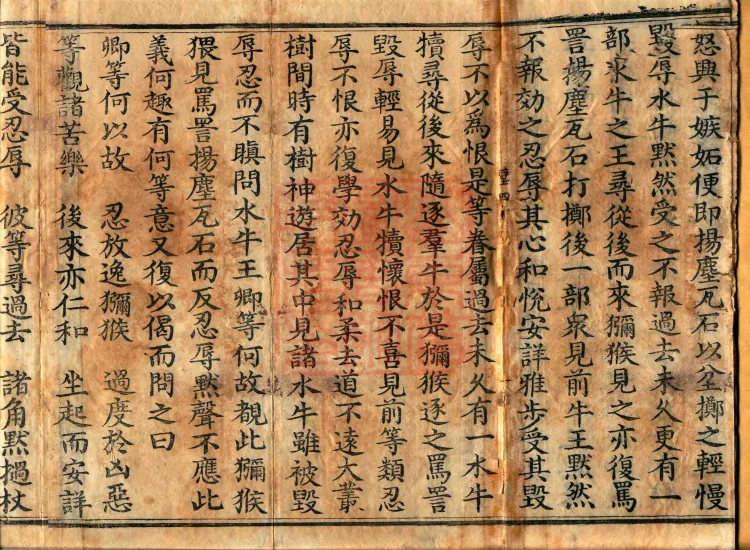 怒興于嫉妬便即揚塵瓦石以坌擲之輕慢
毀辱水牛黙然受之不報過去未久更有一
部水牛之王尋從後而來獼猴見之亦復罵
詈揚塵瓦石打擲後一部衆見前牛王黙然
不報効之忍辱其心和悅安詳雅步受其毀
辱不以爲恨是等眷屬過去未久有一水牛
犢尋從後來隨逐羣牛於是獼猴逐之罵詈
毀辱輕易見水牛犢懷恨不喜見前等類忍
辱不恨亦復學効忍辱和柔去道不遠大叢
樹間時有樹神遊居其中見諸水牛雖被毀
辱忍而不瞋問水牛王卿等何故覩此獼猴
猥見罵詈揚塵瓦石而反忍辱黙聲不應此
義何趣有何等意又復以偈而問之曰
卿等何以故 忍放逸獼猴 過度於凶惡
等觀諸苦樂 後來亦仁和 坐起而安詳
皆能受忍辱 彼等尋過去 諸角黙撾杖